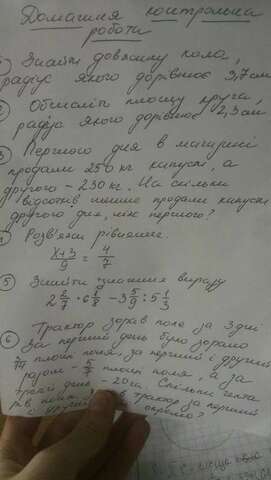 Домашня контрольна
робота
Знайти довжину кола,
радіус якого дорівнює 3,7 см
Обчисліть площу круга,
радіус якого дорівнює 2,3 см
3 Першого дня в магазині
продали 250 кг капусти, а
другого – 230 кг. На скільки
відсотків менше продали капусти
другого дня, ніж першого?
Розв'яжи рівняння:
x+3/9 = 4/7
5 Знайти значення виразу
2 2/7 · 6 1/8 – 3 5/9 : 5 1/3
6 Трактор зорав поле за 3 дні
За перший день було зорано
площі поля, за перший і другий
разом – 5/7 площі поля, а за
третій день – 20 га. Скільки гекта
трактор за перший
окремо?
площа